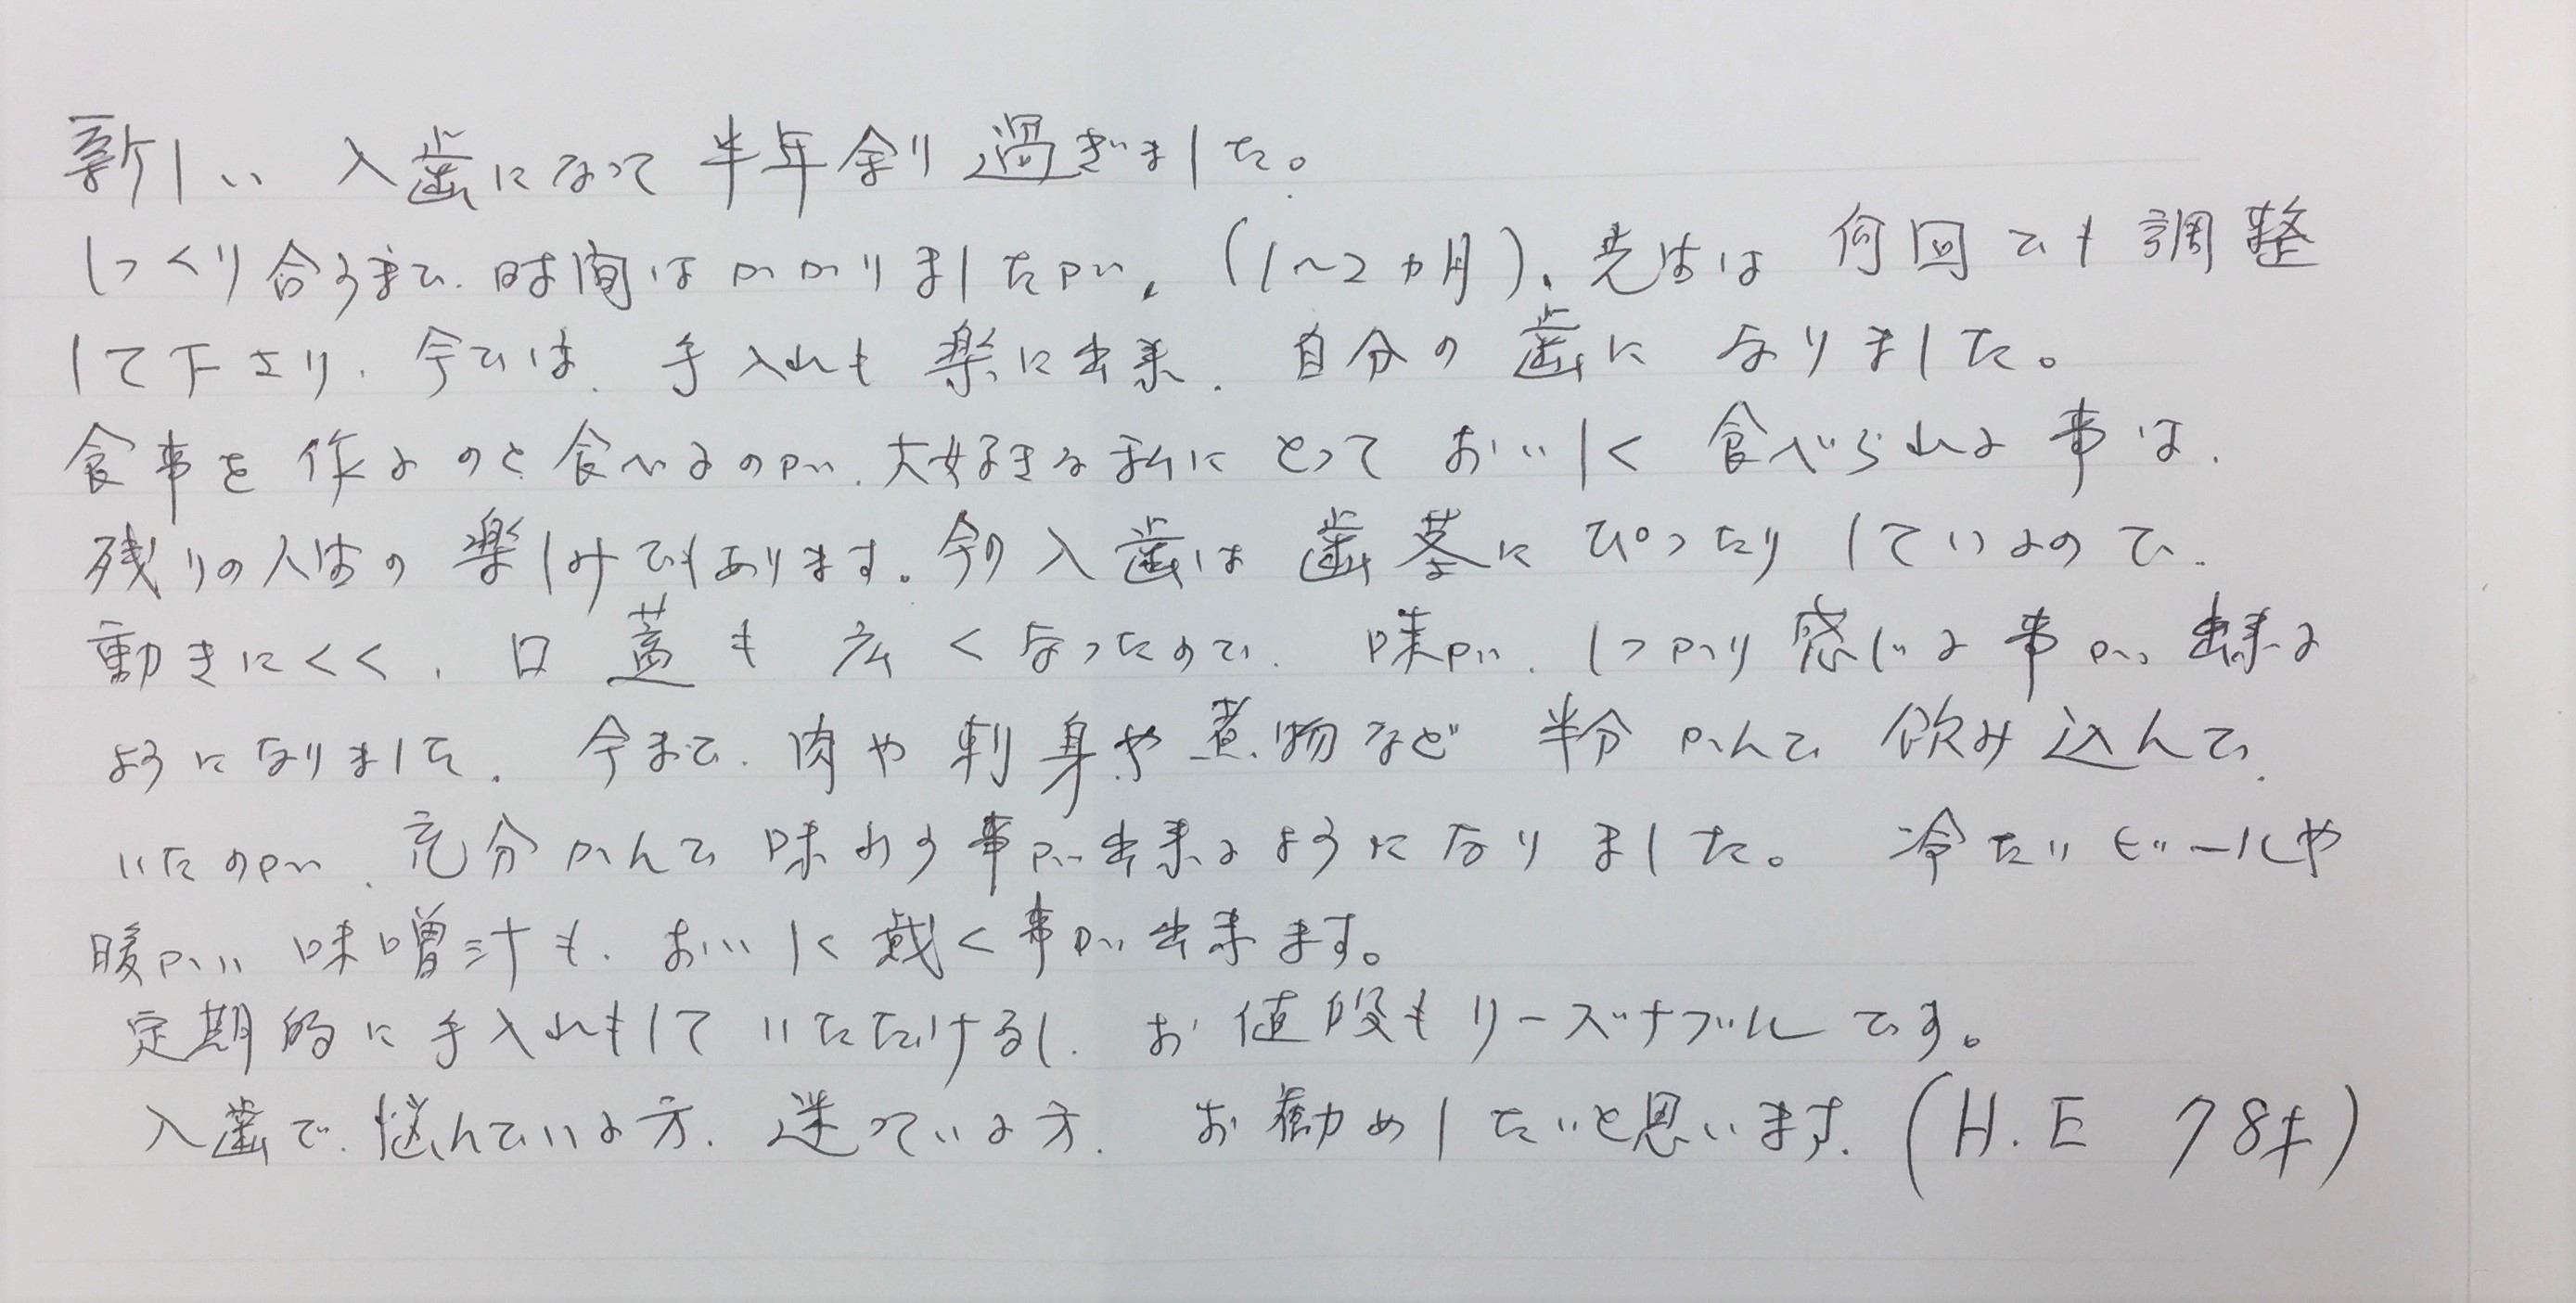 新しい 入歯になって 半年余り 過ぎました。
しっくり合うまで、時間はかかりましたが、(1〜2ヵ月)、先生は 何回でも 調整
して下さり、今では、手入れも 楽に出来、自分の 歯に なりました。
食事を 作るのと 食べるのが、大好きな 私に とって おいしく 食べられる 事は、
残りの人生の 楽しみでもあります。今の入歯は 歯茎に ぴったり しているので、
動きにくく、口蓋も 広くなったので、味が、しっかり 感じる 事が、出来る
ようになりました。今まで、肉や 刺身や 煮物など 半分 かんで 飲み込んで、
いたのが、充分かんで 味わう 事が出来るようになりました。 冷たいビールや
暖かい 味噌汁も、おいしく 戴く 事が出来ます。
定期的に 手入れもして いただけるし、お値段も リーズナブルです。
入歯で、悩んでいる方、迷っている方、お勧めしたいと思います。(H.E 78才)